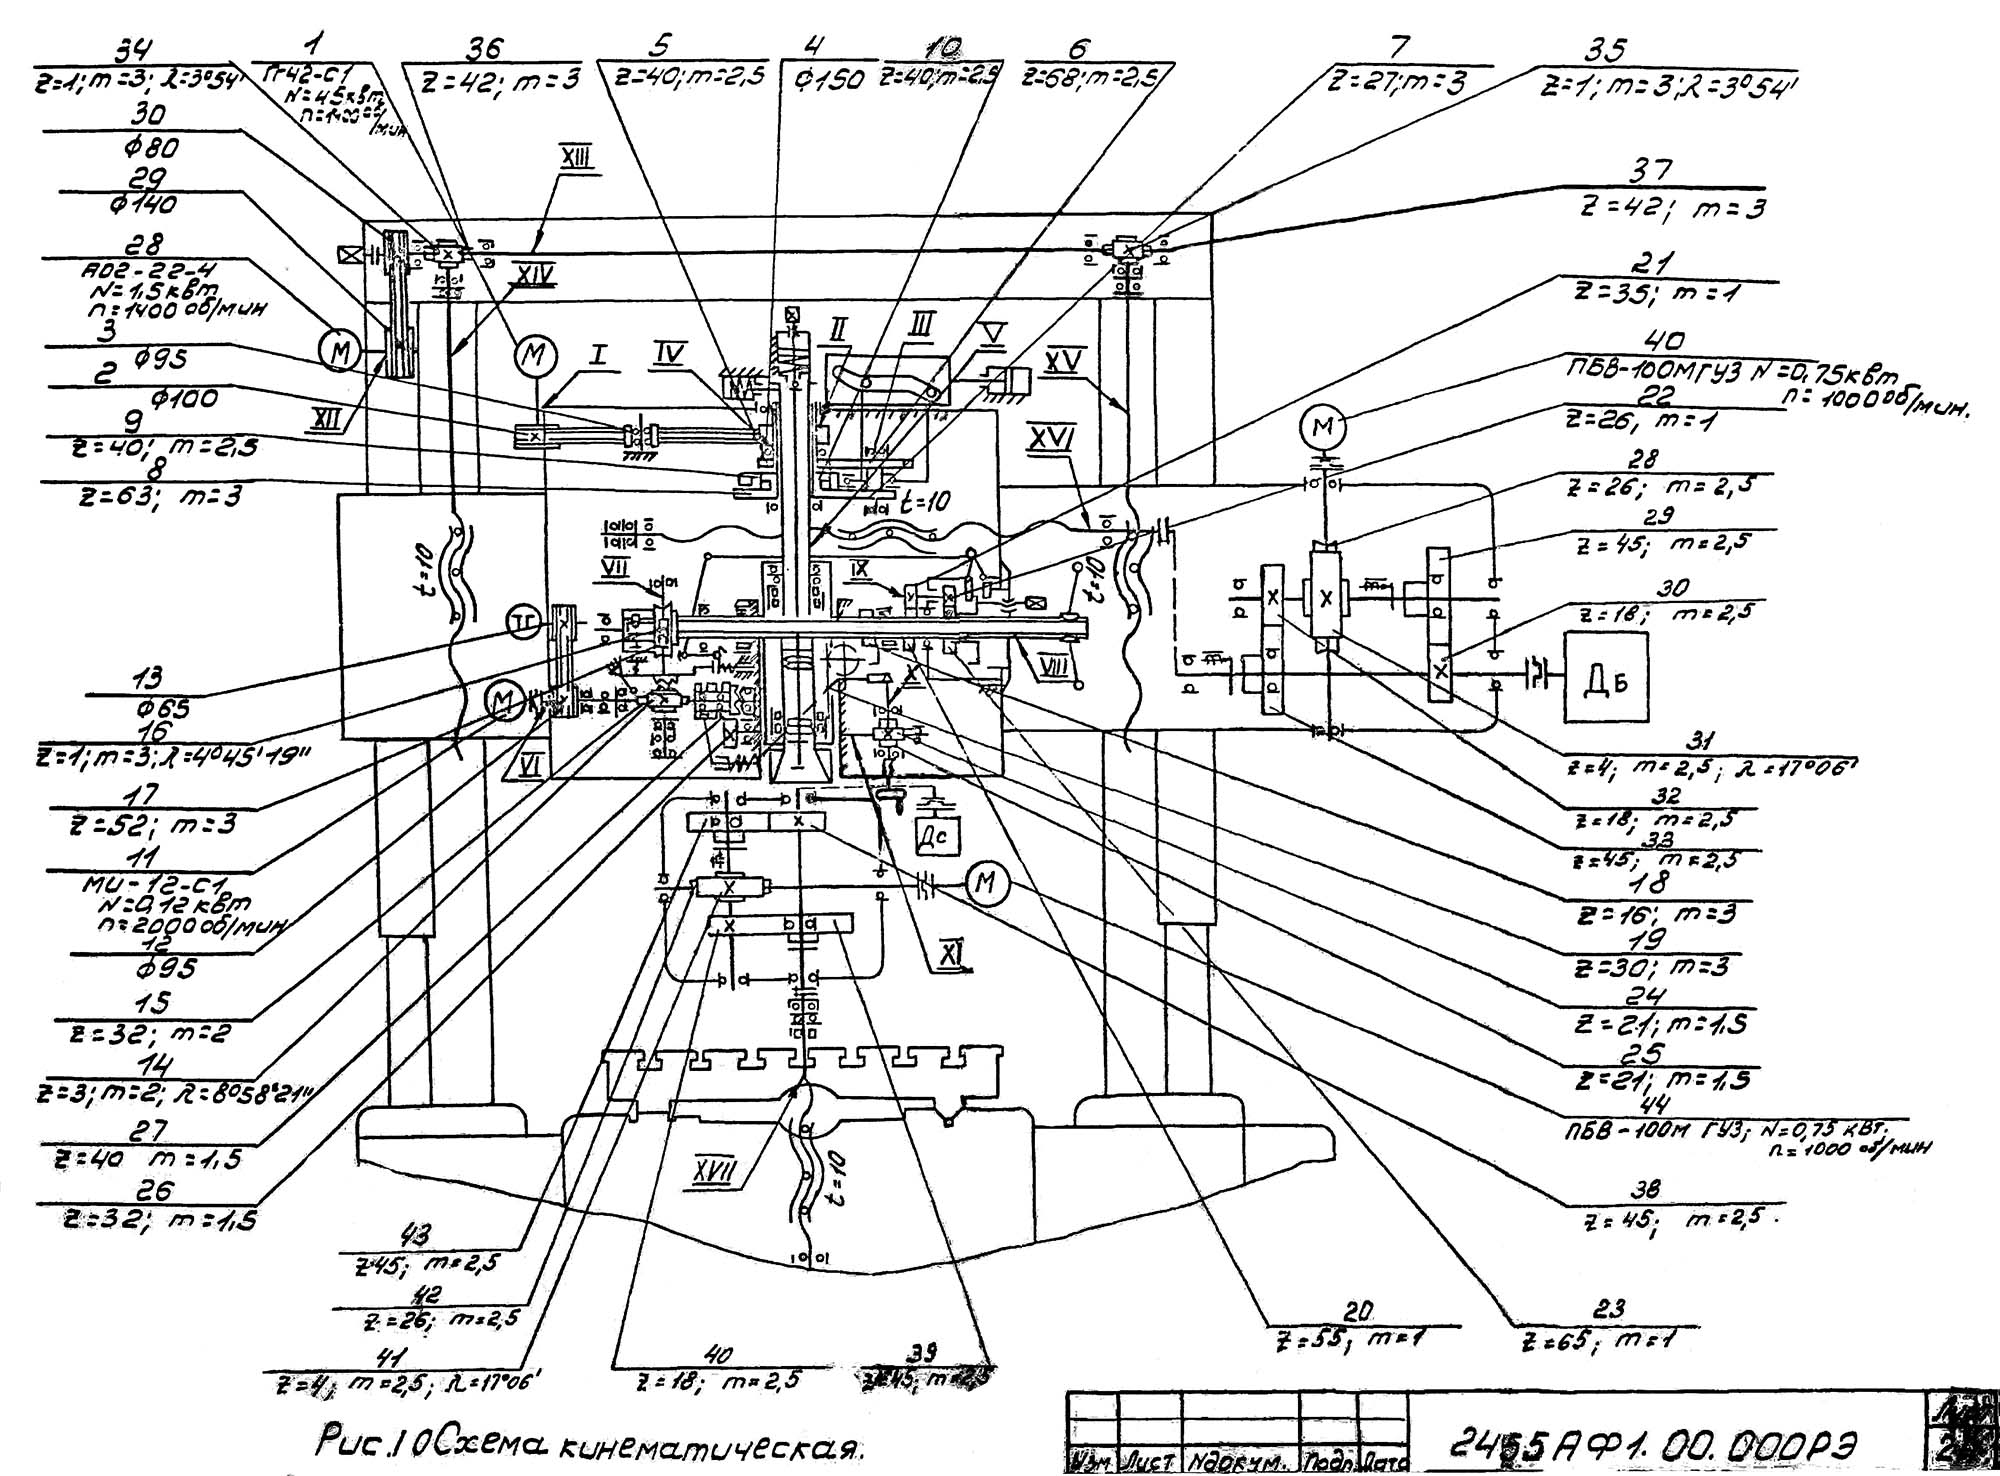 34
z=1; m=3; λ=3°54'
1
N=4,5квт
n=1400 об/мин
36
z=42; m=3
5
z=40; m=2,5
4
ф150
10
z=40; m=2,5
6
z=68; m=2,5
7
z=27; m=3
35
z=1; m=3; λ=3°54'
30
ф80
29
ф140
28
АО2-22-4
N=1,5квт
n=1400 об/мин
3
ф95
2
ф100
9
z=40; m=2,5
8
z=63; m=3
13
ф65
16
z=1; m=3; λ=4°45'19"
17
z=52; m=3
11
МИ-12-С1
N=0,12квт
n=2000об/мин
12
ф95
15
z=32; m=2
14
z=3; m=2; λ=8°58'21"
27
z=40 m=1,5
26
z=32; m=1,5
43
z45; m=2,5
42
z=26; m=2,5
41
z=4; m=2,5; λ=17°06'
40
z=18; m=2,5
39
z=45; m=2,5
37
z=42; m=3
21
z=35; m=1
40
ПБВ-100МГУЗ N=0,75квт
n=1000об/мин.
22
z=26, m=1
28
z=26; m=2,5
29
z=45; m=2,5
30
z=18; m=2,5
31
z=4; m=2,5; λ=17°06'
32
z=18; m=2,5
33
z=45; m=2,5
18
z=16; m=3
19
z=30; m=3
24
z=21; m=1,5
25
z=21; m=1,5
44
ПБВ-100М ГУЗ; N=0,75 квт.
n=1000 об/мин
38
z=45; m=2,5.
20
z=55; m=1
23
z=65; m=1
XIII
XIV
XII
I
IV
II
III
V
XV
XVI
VII
IX
VIII
X
VI
XI
XVII
М
М
М
М
М
ТГ
Дс
ДБ
t=10
t=10
t=10
t=10
Рис.10 Схема кинематическая.
2455АФ1.00.000РЭ
Изм Лист Nдокум. Подп. Дата